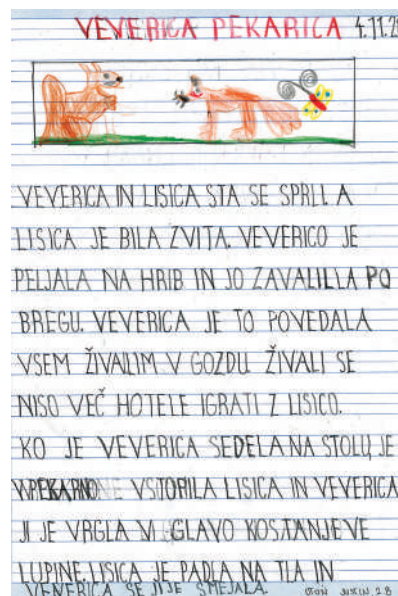 VEVERICA PEKARICA 4.11.2
VEVERICA IN LISICA STA SE SPRLI. A
LISICA JE BILA ZVITA. VEVERICO JE
PELJALA NA HRIB IN JO ZAVALILLA PO
BREGU. VEVERICA JE TO POVEDALA
VSEM ŽIVALIM V GOZDU. ŽIVALI SE
NISO VEČ HOTELE IGRATI Z LISICO.
KO JE VEVERICA SEDELA NA STOLU, JE
V PEKARNO VSTORILA LISICA IN VEVERICA
JI JE VRGLA V GLAVO KOSTANJEVE
LUPINE. LISICA JE PADLA NA TLA IN
VEVERICA SE JI JE SMEJALA. 2.B